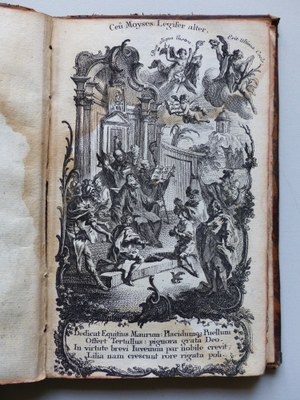 Ceu Moyses Legifer alter.
Dedicat Equitius Maurum: Placidumq; Puellum
Offert Tertullus: pignora grata Deo.
In virtute brevi Iuvenum par nobile crevit:
Lilia nam crescunt rore rigata poli.